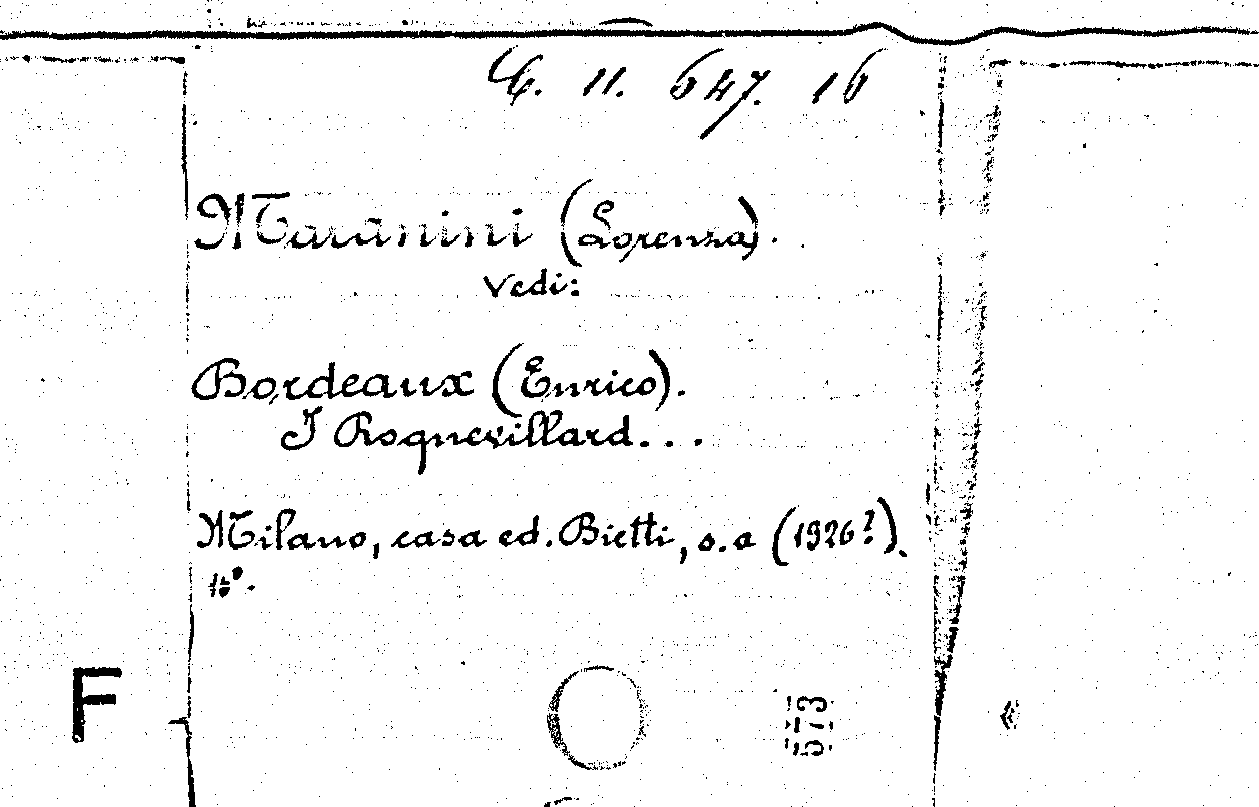 C. 11. 647. 16
Maranini (Lorenza).
Vedi:
Bordeaux (Enrico).
I Roquevillard...
Milano, casa ed. Bietti, s.a (1926?).
16°.
F
573